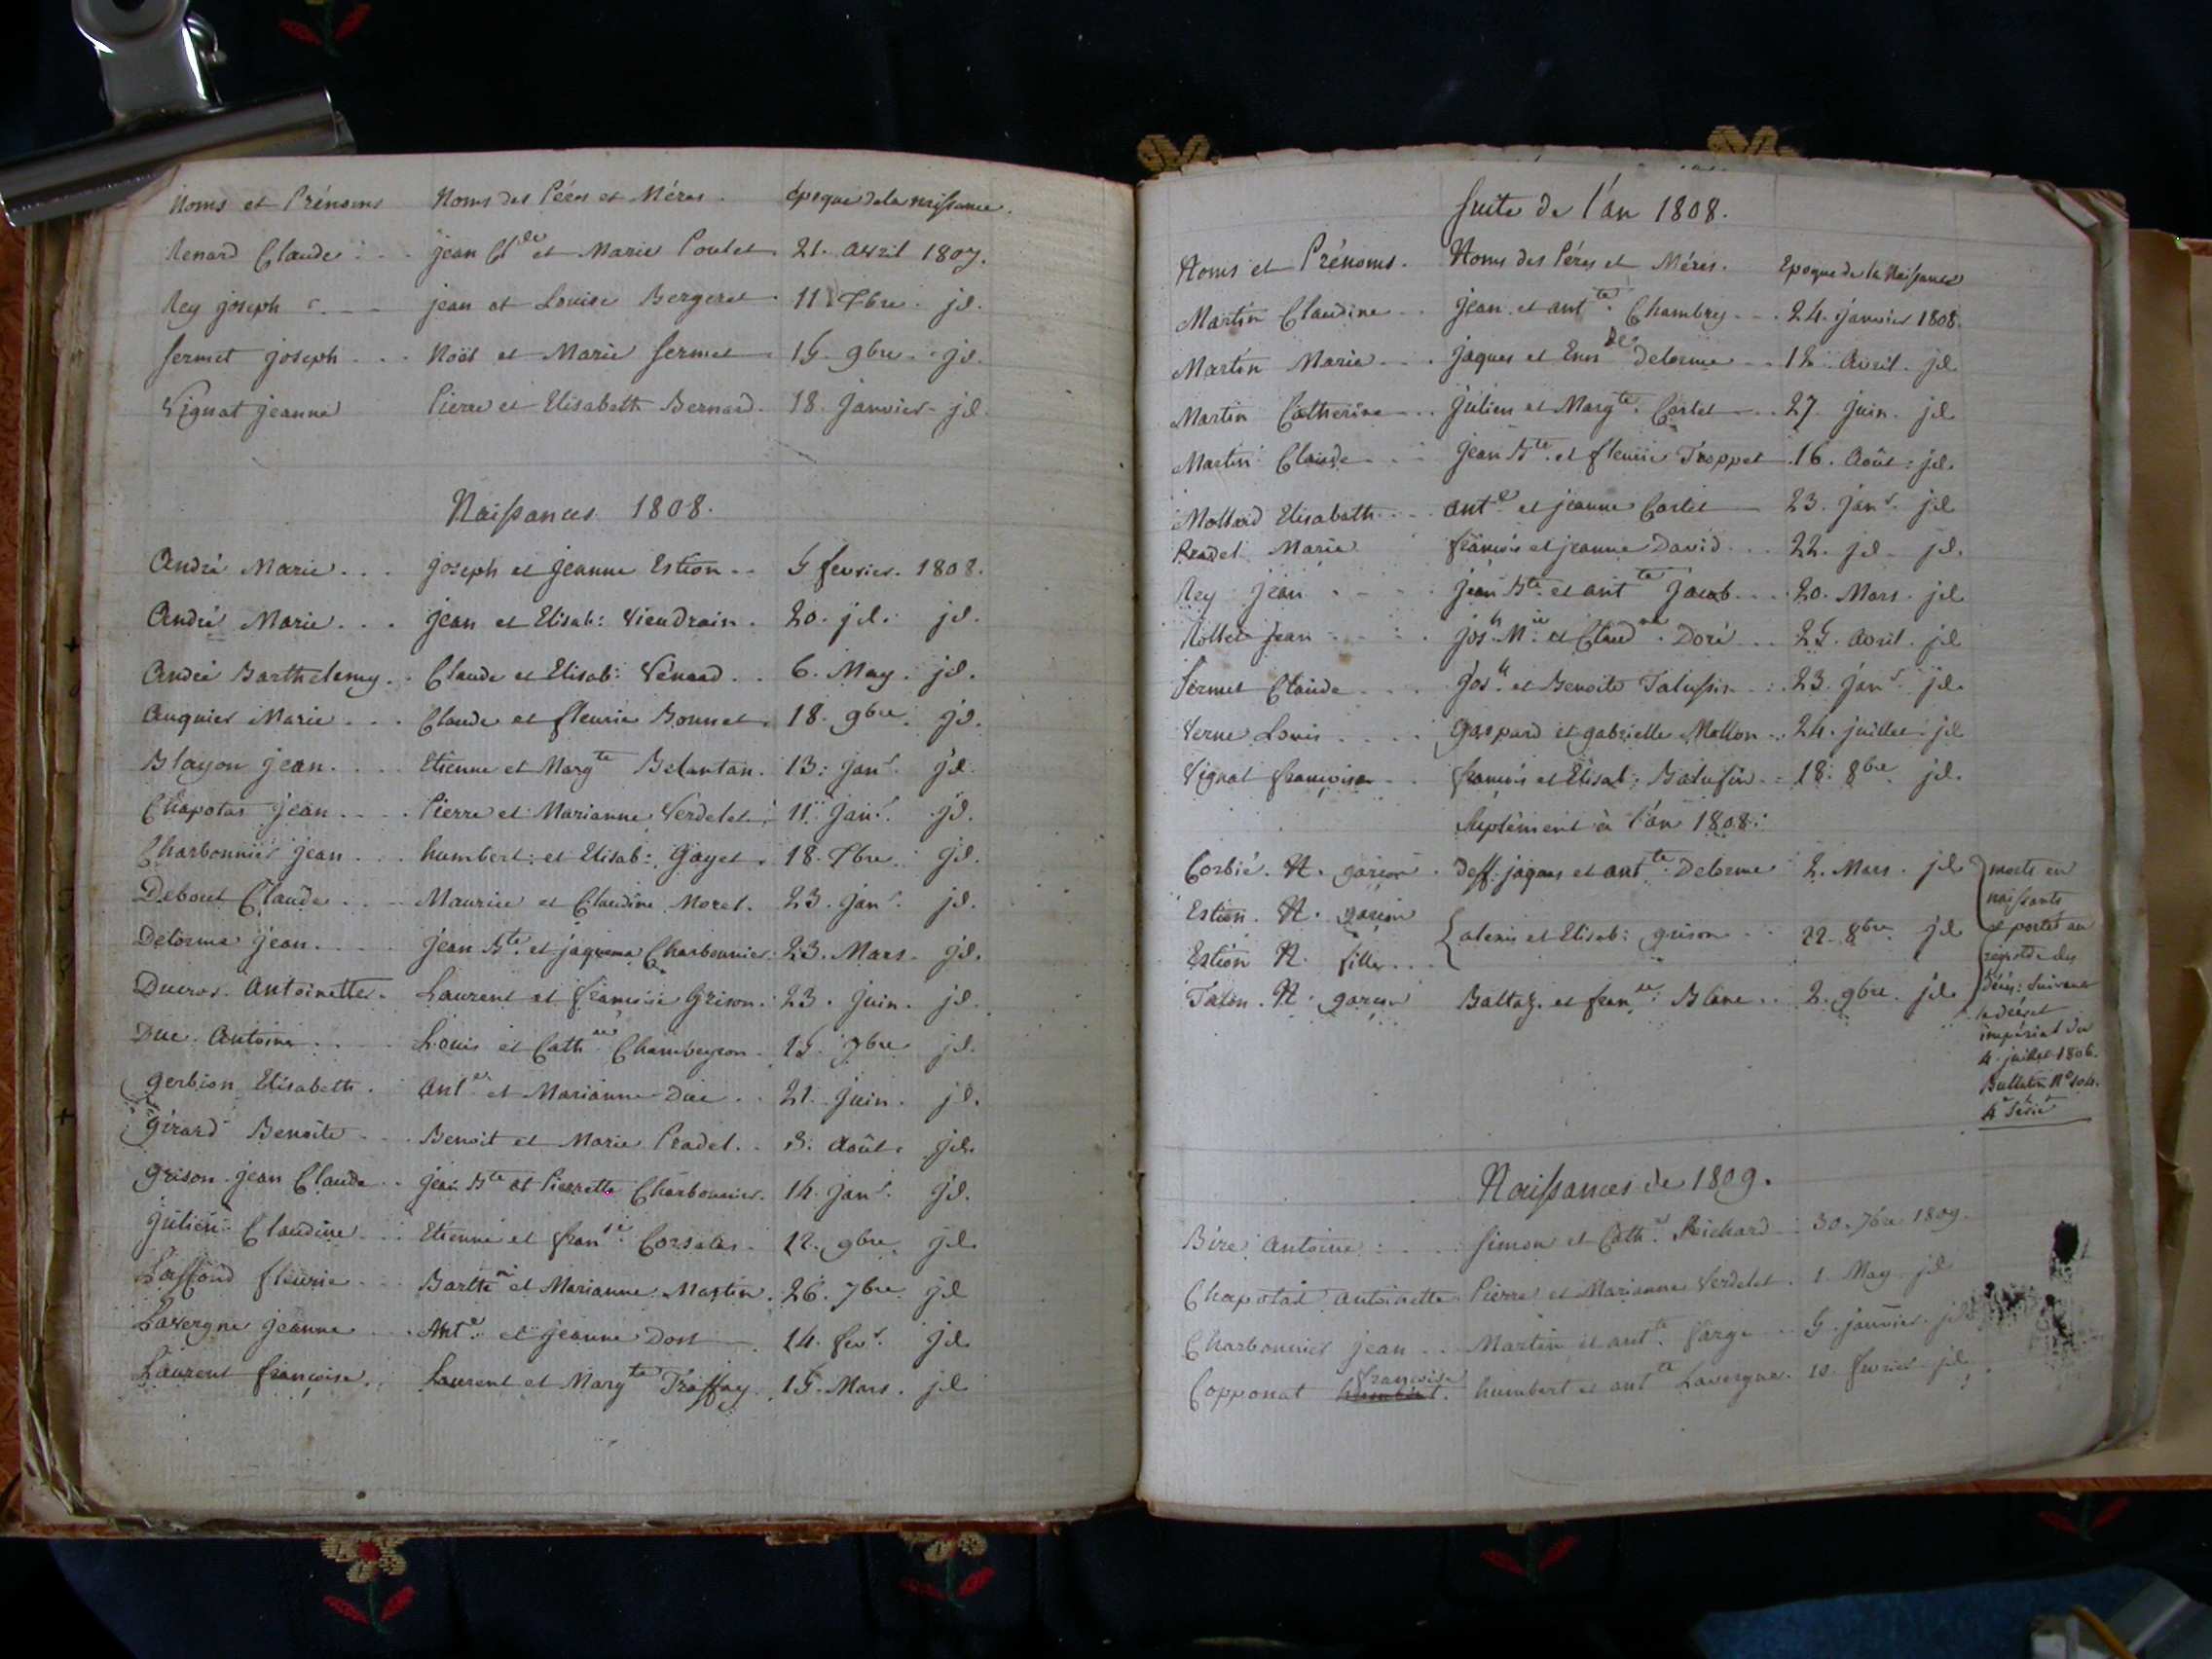 Noms et Prénoms Noms des Péres et Méres. époque de la naissance.
Renard Claude jean Cl de et Marie Poulet 21. avril 1807.
Rey joseph jean et Louise Bergeret 11 7bre jd.
Sermet joseph Noël et Marie Sermet 15. 9bre jd.
Vignat jeanne Pierre et Elisabeth Bernard. 18. janvier jd.
Naissances 1808.
André Marie joseph et jeanne Estion 5 fevrier. 1808.
André Marie jean et Elisab: Vieudrain. 20. jd. jd.
André Barthelemy Claude et Elisab: Vénard 6. May. jd.
Auquier Marie Claude et fleurie Bonnet 18. 9bre. jd.
Blayon jean Etienne et Marg te Belantan. 13: janr. jd.
Chapotat jean Pierre et Marianne Verdelet 11 janr. jd.
Charbonnier jean humbert et Elisab: Gayet 18. 7bre. jd.
Debout Claude Maurice et Claudine Morel. 23. janr. jd.
Delorme jean jean Bte. et jaquema Charbonnier 23. Mars. jd.
Ducros Antoinette Laurent et françoise Grison. 23. juin. jd.
Duc Antoine Louis et Cath ne Chambeyron 15. 7bre jd.
gerbion Elisabeth Ant e et Marianne Duc 21. juin. jd.
Girard Benoite Benoit et Marie Pradel 3. Août. jd.
Grison jean Claude jean Bte et Pierrette Charbonnier. 14. janr. jd.
julien Claudine Etienne et fran se Corsales 12. 9bre. jd.
Laffond fleurie Barth mi et Marianne Martin. 26. 7bre. jd
Lavergne jeanne Ant e. et jeanne Dost 14. fevr. jd.
Laurent françoise. Laurent et Marg te Traffay. 15. Mars. jd
Suite de l'an 1808.
Noms et Prénoms. Noms des Péres et Méres. Epoque de la Naissance
Martin Claudine jean et ant te Chambry 24. janvier 1808.
Martin Marie jaques et Enn de Delorme 12 avril. jd
Martin Catherine julien et Marg te. Cortet 27 juin. jd
Martin Claude jean Bte. et fleurie Troppet 16. Août. jd.
Mollard Elisabeth ant e et jeanne Cortet 23. janr. jd
Pradel Marie françois et jeanne David 22. jd. jd.
Rey jean jean Bte. et ant te jacob 20. Mars. jd
Rollet jean jos h. M ie et Claud ne. Doré 25. avril. jd
Sermet Claude jos h. et Benoite Talussin 23. janr. jd.
Verne Louis Gaspard et gabrielle Mollon 24. juillet. jd
Vignat françoise françois et Elisab: Balusin 18. 8bre. jd.
Suplément à l'an 1808.
Corbié. N. garçon deff. jaques et ant te. Delorme 2. Mars. jd morts en
naissants
Estion. N. garçon alexis et Elisab: grison 22. 8bre. jd et portés au
Estion N. fille registre des
Talon. N. garçon Baltaz. et fran se. Blanc 2. 9bre. jd décés: suivant
le décret
impérial du
4. juillet 1806.
Bulletin No. 104.
4e Série
Naissances de 1809.
Biré Antoine Simon et Cath e. Richard 30. 7bre 1809.
Chapotat antoinette Pierre et Marianne Verdelet. 1. May. jd
Charbonnier jean Martin et ant te. farge 5. janvier. jd
françoise
Copponat humbert. humbert et ant te Lavergne. 10. fevrier jd